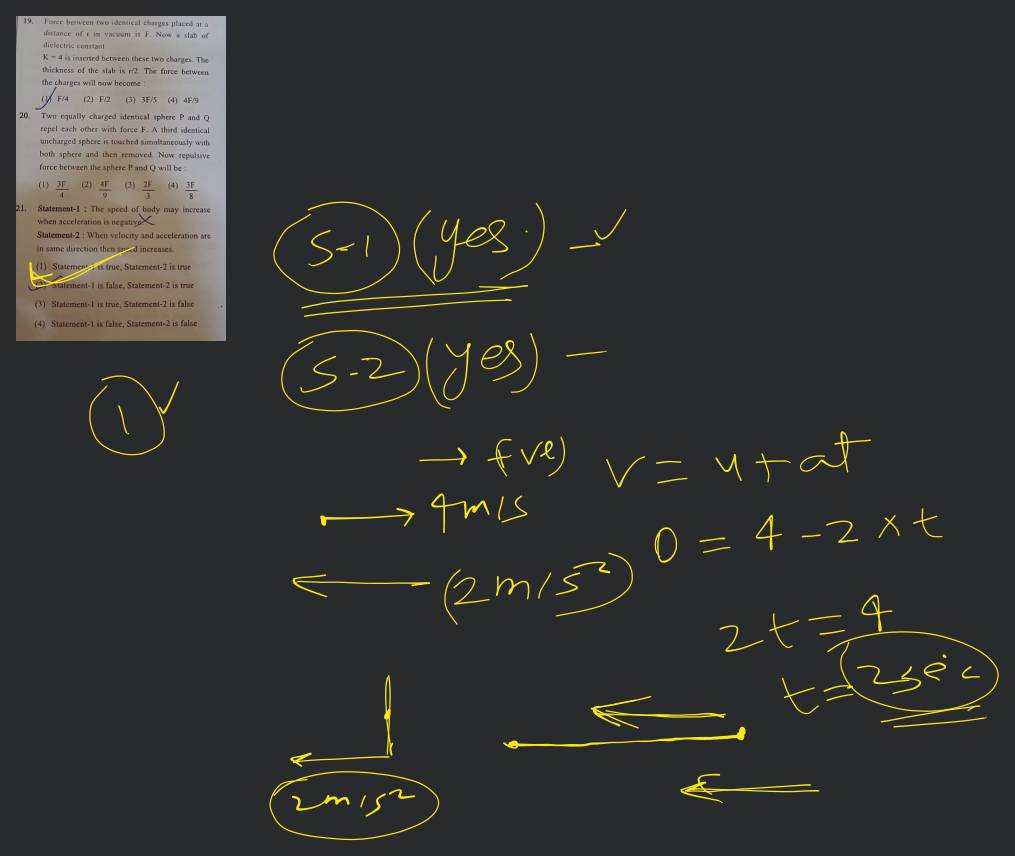 19. Force between two identical charges placed at a
distance of r in vacuum is F. Now a slab of
dielectric constant
K = 4 is inserted between these two charges. The
thickness of the slab is r/2. The force between
the charges will now become :
(1) F/4 (2) F/2 (3) 3F/5 (4) 4F/9
20. Two equally charged identical sphere P and Q
repel each other with force F. A third identical
uncharged sphere is touched simultaneously with
both sphere and then removed. Now repulsive
force between the sphere P and Q will be :
(1) 3F/4 (2) 4F/9 (3) 2F/3 (4) 3F/8
21. Statement-1 : The speed of body may increase
when acceleration is negative
Statement-2 : When velocity and acceleration are
in same direction then speed increases.
(1) Statement-1 is true, Statement-2 is true
(2) Statement-1 is false, Statement-2 is true
(3) Statement-1 is true, Statement-2 is false
(4) Statement-1 is false, Statement-2 is false
S-1 (yes.) - ✓
S-2 (yes) -
1 ✓
→ (+ve)
v = u + at
→ 4 m/s
0 = 4 - 2 × t
← (2 m/s²)
2t = 4
t = 2 sec
2 m/s²